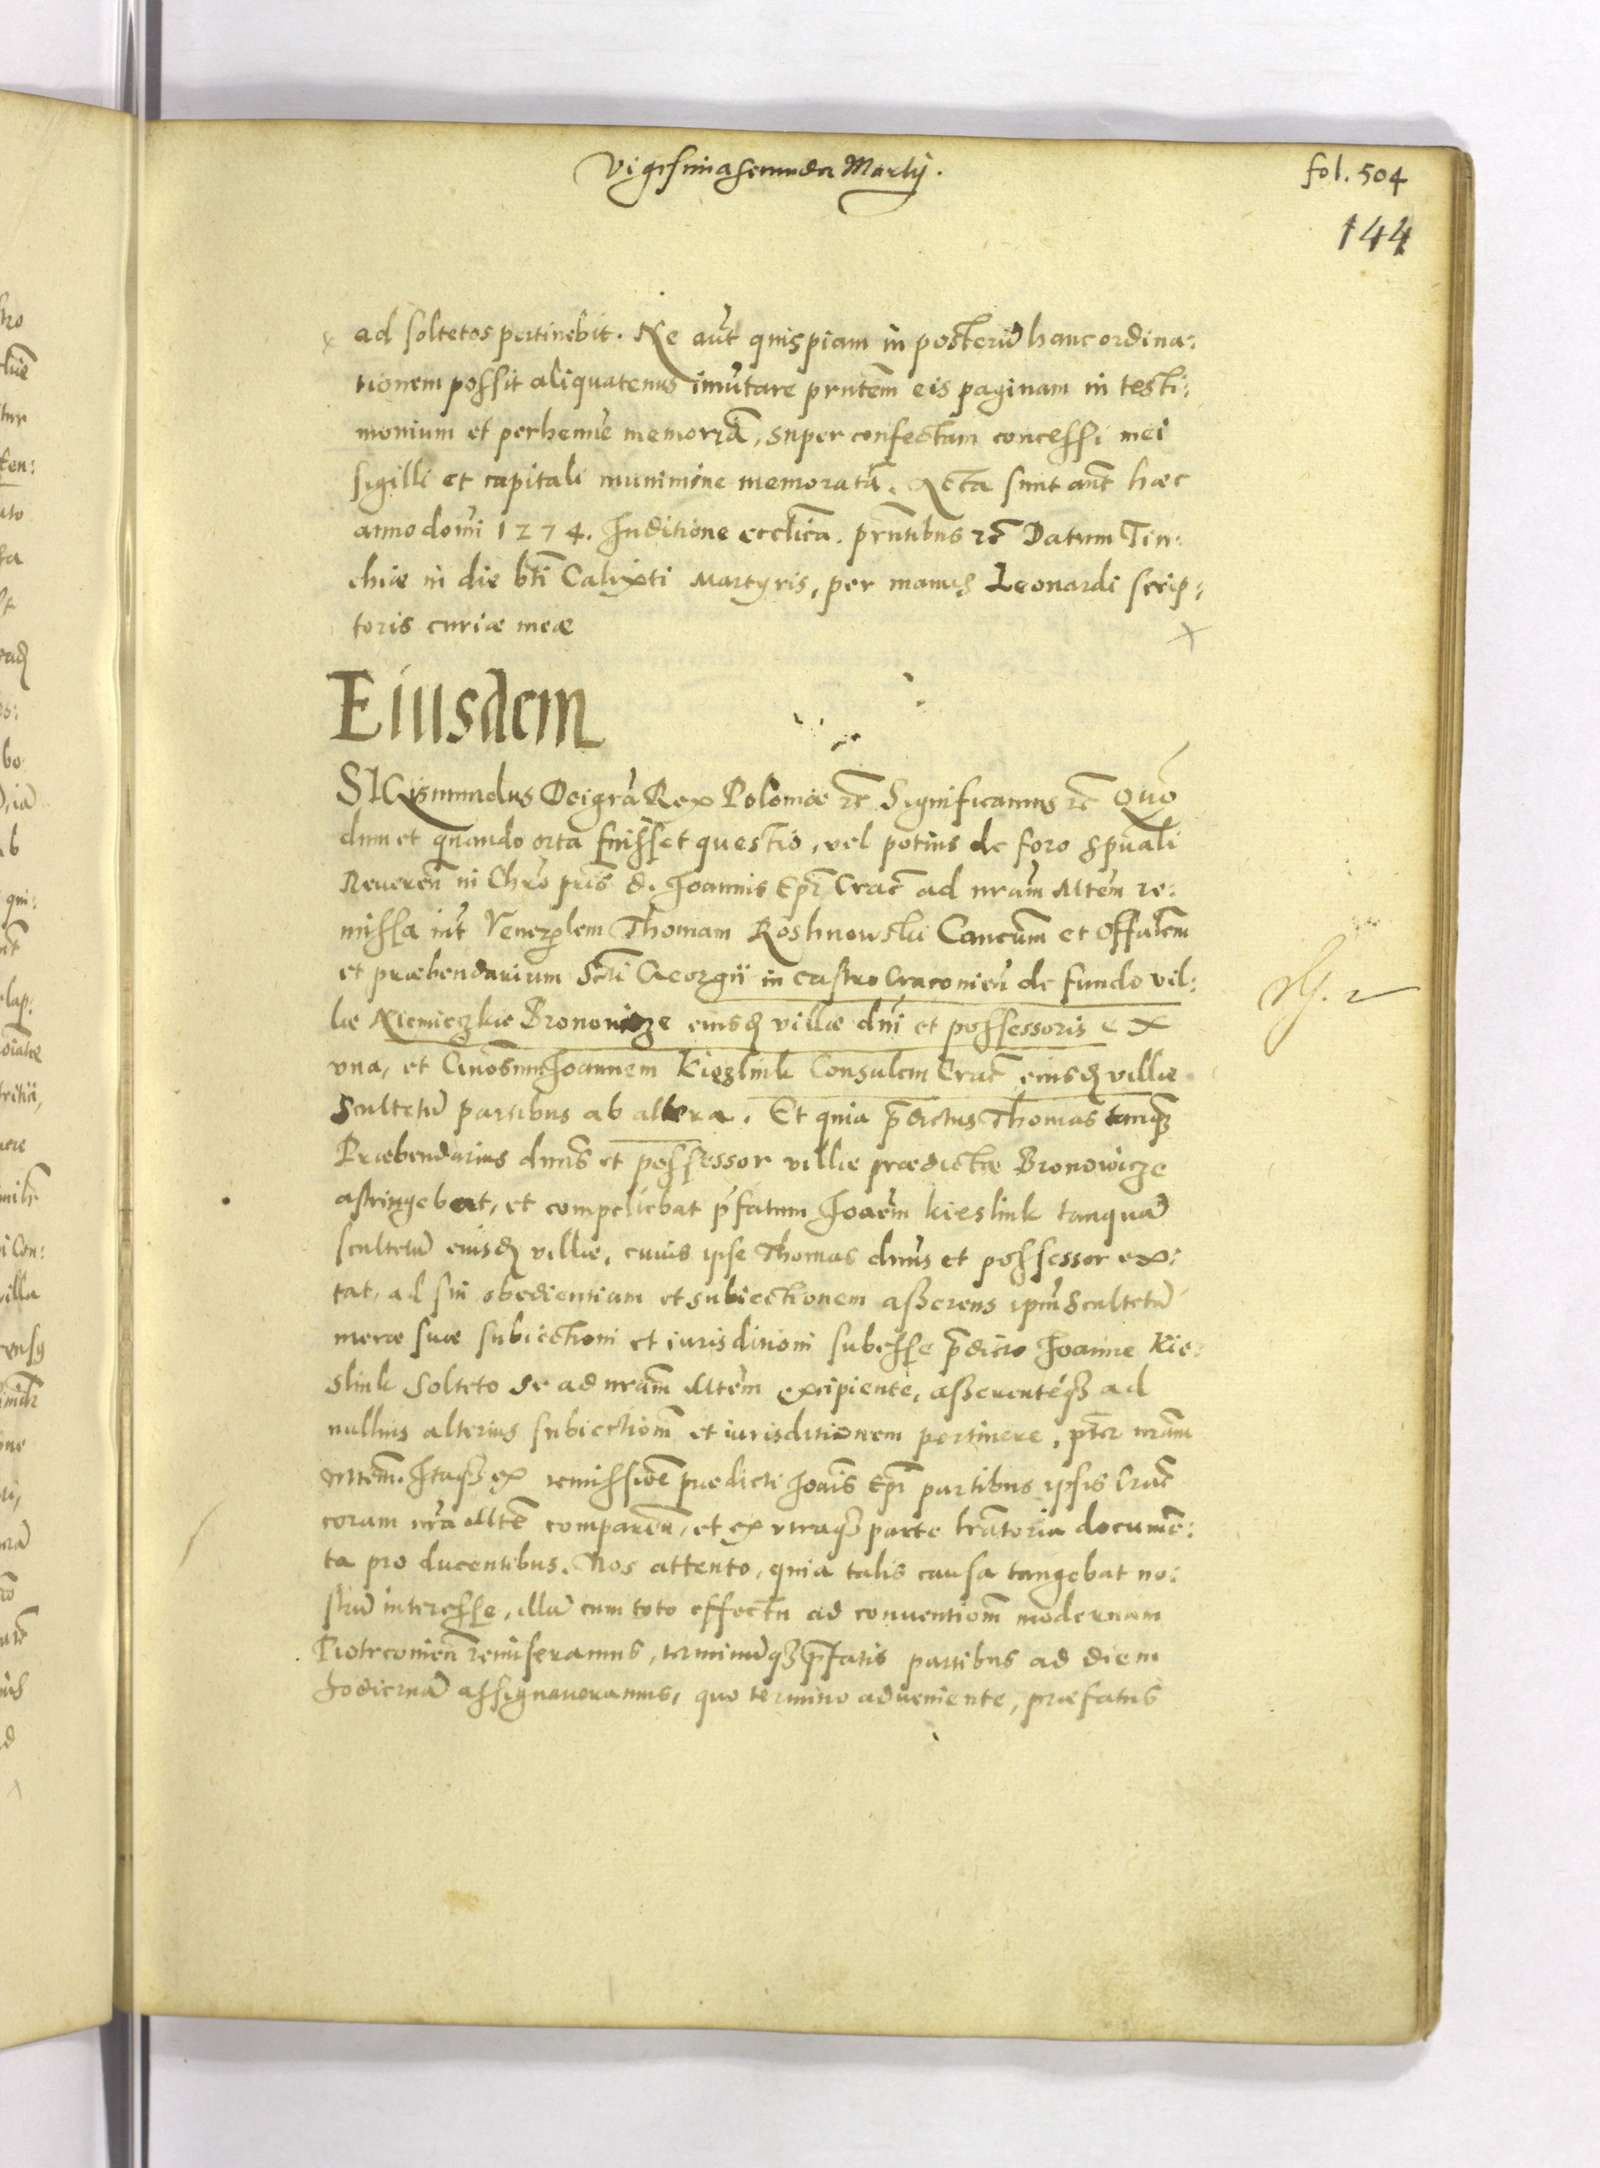 Vigesima secunda Martij.
fol. 504
144
ad soltetos pertinebit. Ne aut̃ quispiam in posterũ hanc ordina:
tionem possit aliquatenus im̃utare prñtem eis paginam in testi:
monium et perhennẽ memoriã, super confectam concessi mei
sigilli et capituli munimine memoratã. Acta sunt aut̃ hæc
anno domĩ 1274. Inditione ecclica. prñtibus etc̃ Datum Tin:
chiæ in die btĩ Calixti Martyris, per manus Leonardi scrip:
toris curiæ meæ
Eiusdem
SIGismundus Dei grã Rex Poloniæ etc̃ Significamus etc̃ Quõ
dum et quando orta fuisset questio, vel potius de foro spũali
Reveren̄ in Chrõ pr̃is d. Joannis Epĩ Crac̃ ad nrãm Mtẽm re:
missa int̃ Venerlem Thomam Roshnowski Canc̃um et Offalẽm
et præbendarium Sctĩ Georgii in castro Craconieñ de fundo vil:
læ Niemieczkie Bronowicze eiusd villæ dnĩ et possessoris ex
vna, et Joannem Kieslink Consulem Crac̃ eiusd villæ
Scultetũ partibus ab altera. Et quia p̃dictus Thomas tanq
Præbendarius dnũs et possessor villæ prædictæ Bronowicze
astringebat, et compellebat p̃fatum Joañem Kieslink tanquã
scultetũ eiusd villæ, cuius ipse Thomas dnũs et possessor ex:
tat, ad sui obedientiam et subiectionem asserens ipm̃ Scultetũ
meræ suæ subiectioni et iurisditioni subesse p̃dicto Joanne Kie:
slink Solteto se ad nrãm Mtẽm excipiente, asserentẽq ad
nullius alterius subiectionẽ et iurisditionem pertinere, pt̃er nrãm
Mtẽm. Itaq ex remissiõe prædicti Joañis Epĩ partibus ipsis Crac̃
coram nrã Mtẽ comparen̄, et ex vtraq parte documẽ:
ta pro ducentibus. Nos attento, quia talis causa tangebat no:
strũ interesse, illã cum toto effectu ad conventionẽ modernam
Piotrconien̄ remiseramus, terminũq p̃fatis partibus ad diem
hodiernã assignaveramus, quo termino adveniente, præfatus